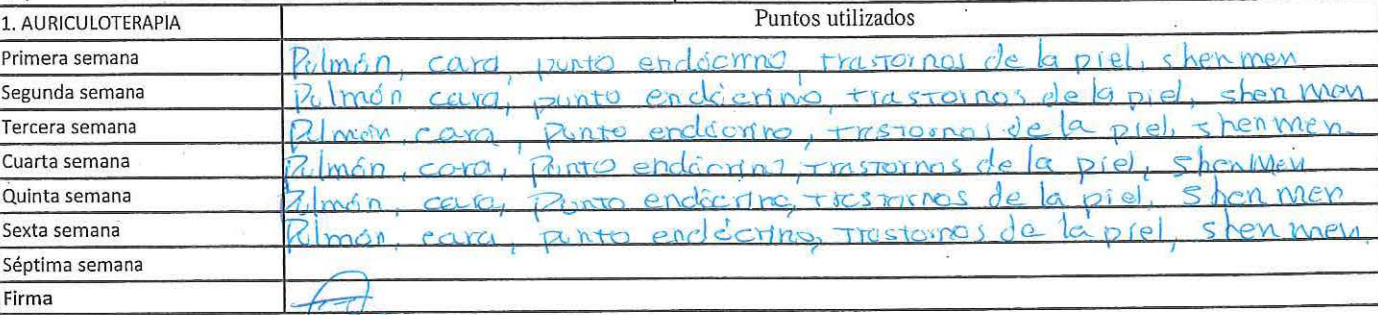 1. AURICULOTERAPIA Puntos utilizados
Primera semana Pulmón, cara, punto endócrino, trastornos de la piel, shen men
Segunda semana Pulmón cara, punto endócrino, trastornos de la piel, shen men
Tercera semana Pulmón, cara, punto endócrino, trastornos de la piel, shen men
Cuarta semana Pulmón, cara, Punto endócrino, trastornos de la piel, Shen Men
Quinta semana Pulmón, cara, Punto endócrino, trastornos de la piel, Shen men
Sexta semana Pulmón, cara, punto endócrino, trastornos de la piel, shen men.
Séptima semana
Firma